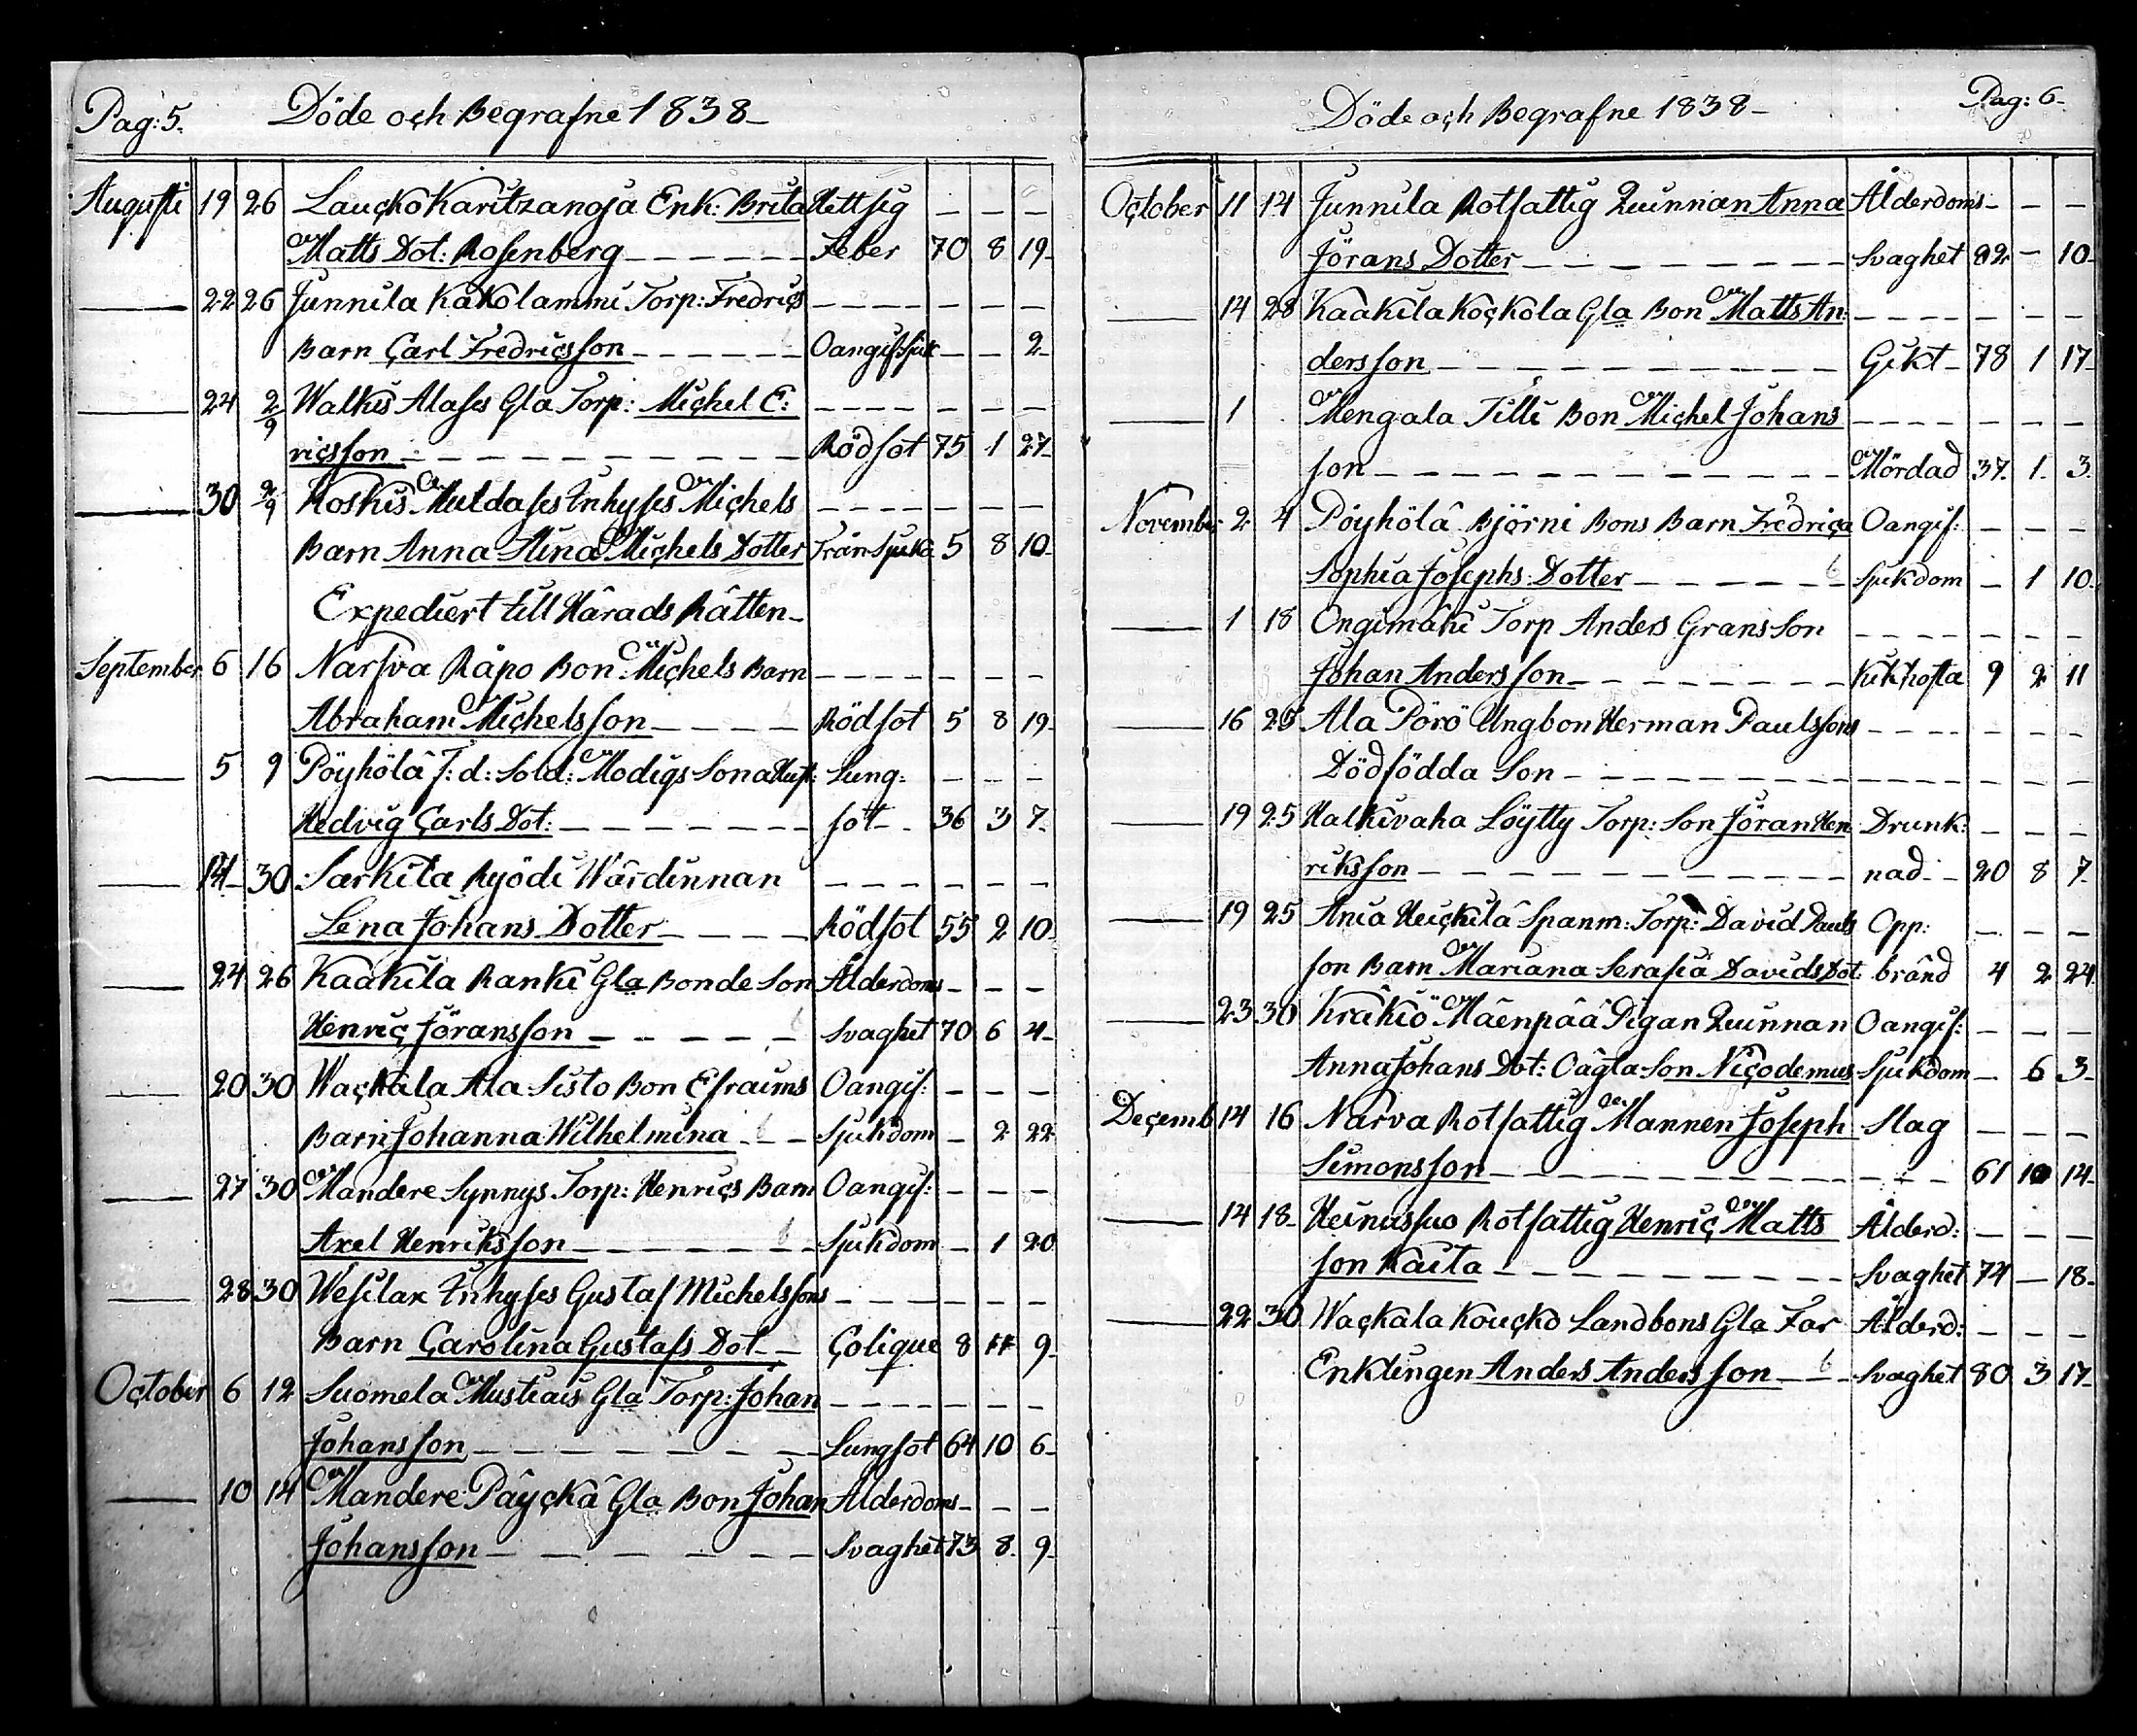 Pag: 5. Döde och Begrafne 1838
Augusti 19 26 Lauçko Karitzanoja Enk: Brita Hettsig – – –
Matts Dot: Rosenberg – – – Feber 70 8 19
— 22 26 Junnila Kakolammi Torp: Fredriçs – – –
Barn Çarl Fredriçsson – – – Oangif: sjuk – – 2
— 24 2/9 Walkis Alases Gla Torp: Miçhel E: – – –
riçsson – – – Rödsot 75 1 27
— 30 2/9 Koskis Muldases Inhyses Miçhels – – –
Barn Anna Stina Miçhels Dotter Trånsjuka 5 8 10
Expediert till Härads Rätten
September 6 16 Narfva Räpo Bon: Miçhels Barn – – –
Abraham Miçhelsson – – – Rödsot 5 8 19
— 5 9 Pöyhölä F: d: Sold: Modigs Sona Hust: Lung: – – –
Hedvig Çarls Dot: – – – sot 36 3 7
— 14 30 Sarkila Ryödi Wärdinnan – – –
Lena Johans Dotter – – – Rödsot 55 2 10
— 24 26 Kaakila Ranki Gla Bonde Son Ålderdoms – – –
Henriç Jöransson – – – Svaghet 70 6 4
— 20 30 Waçkala Ala Sisto Bon Efraims Oangif: – – –
Barn Johanna Wilhelmina – – Sjukdom – 2 22
— 27 30 Mandere Synnys Torp: Henriçs Barn Oangif: – – –
Axel Henriksson – – – Sjukdom – 1 20
— 28 30 Wesilax Inhyses Gustaf Michelssons – – –
Barn Çarolina Gustafs Dot – – Çolique 8 11 9
Oçtober 6 12 Suomela Mustiais Gla Torp: Johan – – –
Johansson – – – Lungsot 64 10 6
— 10 14 Mandere Päyçkä Gla Bon Johan Ålderdoms – – –
Johansson – – – Svaghet 73 8 9
Döde och Begrafne 1838 Pag: 6
Oçtober 11 14 Junnila Rotfattig Quinnan Anna Ålderdoms – – –
Jörans Dotter – – – Svaghet 82 – 10
— 14 28 Kaakila Koçkola Gla Bon Matts An – – –
dersson – – – Gikt 78 1 17
— 1 Mengala Tilli Bon Miçhel Johans – – –
son – – – Mördad 37 1 3
November 2 4 Pöyhölä Björni Bons Barn Fredriça Oangif: – – –
Sophia Josephs Dotter – – – Sjukdom – 1 10
— 1 18 Ongimäki Torp Anders Grans Son – – –
Johan Andersson – – – Kikhosta 9 2 11
— 16 25 Ala Pörö Ungbon Herman Paulssons – – –
Dödfödda Son – – –
— 19 25 Halkivaha Löytty Torp: Son Jöran Hen Drunk: – – –
riksson – – – nad 20 8 7
— 19 25 Ania Heiçkilä Spanm: Torp: David Pauls Opp: – – –
son Barn Mariana Serafia Davids Dot: bränd 4 2 24
— 23 30 Kräkiö Mäenpää Pigan Quinnan Oangif: – – –
Anna Johans Dot: Oägta Son Niçodemus Sjukdom – 6 3
Deçemb 14 16 Narva Rotfattig Mannen Joseph Slag – – –
Simonsson – – – 61 10 14
— 14 18 Heinussuo Rotfattig Henriç Matts Ålderd: – – –
son Kaita – – – Svaghet 74 – 18
— 22 30 Waçkala Kouçko Landbons Gla Far Ålderd: – – –
Enklingen Anders Andersson – – Svaghet 80 3 17